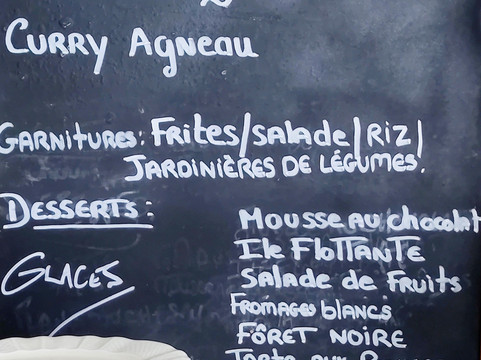 Curry Agneau
Garnitures: Frites/Salade/Riz/
Jardinières de Légumes.
Desserts:
Mousse au chocolat
Ile Flottante
Glaces
Salade de Fruits
Fromages blancs
Fôret Noire